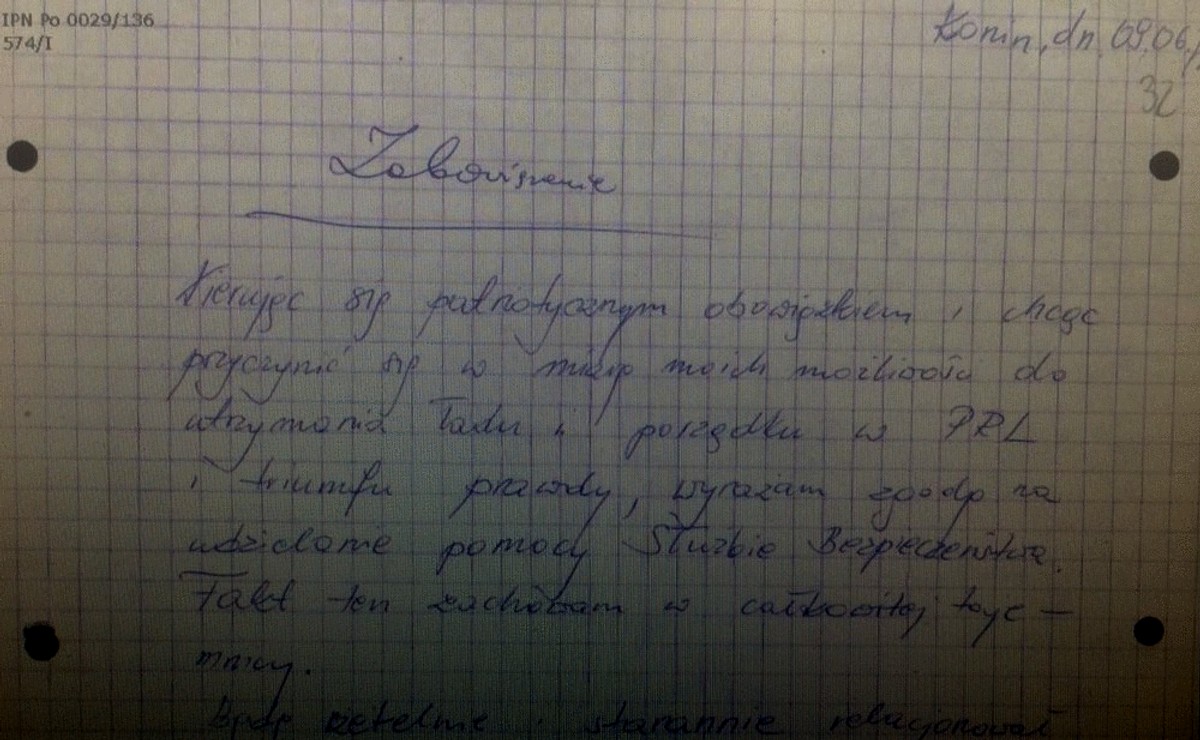 IPN Po 0029/136
574/I
Konin, dn. 09.06.
32
Zobowiązanie
Kierując się patriotycznym obowiązkiem i chcąc
przyczynić się w miarę moich możliwości do
utrzymania ładu i porządku w PRL
i triumfu prawdy, wyrażam zgodę na
udzielanie pomocy Służbie Bezpieczeństwa.
Fakt ten zachowam w całkowitej taje-
mnicy.
Będę rzetelnie i starannie relacjonował